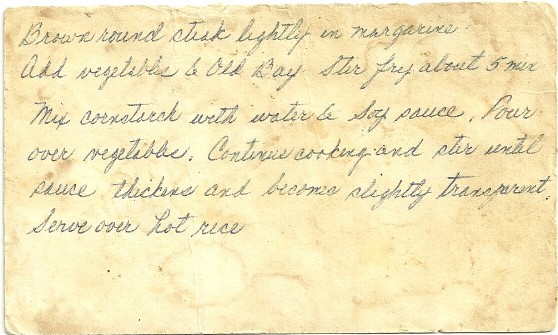 Brown round steak lightly in margarine.
Add vegetables & Old Bay Stir fry about 5 min
Mix cornstarch with water & Soy sauce. Pour
over vegetables. Continue cooking and stir until
sauce thickens and becomes slightly transparent.
Serve over hot rice